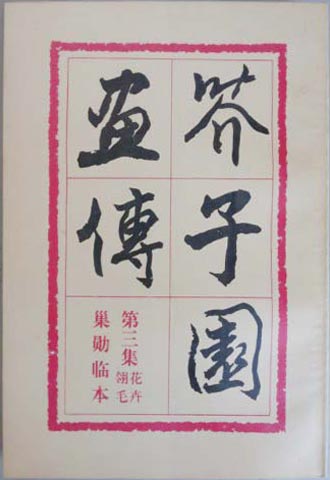 芥子園
畫傳
第三集 花卉 翎毛
巢勋临本